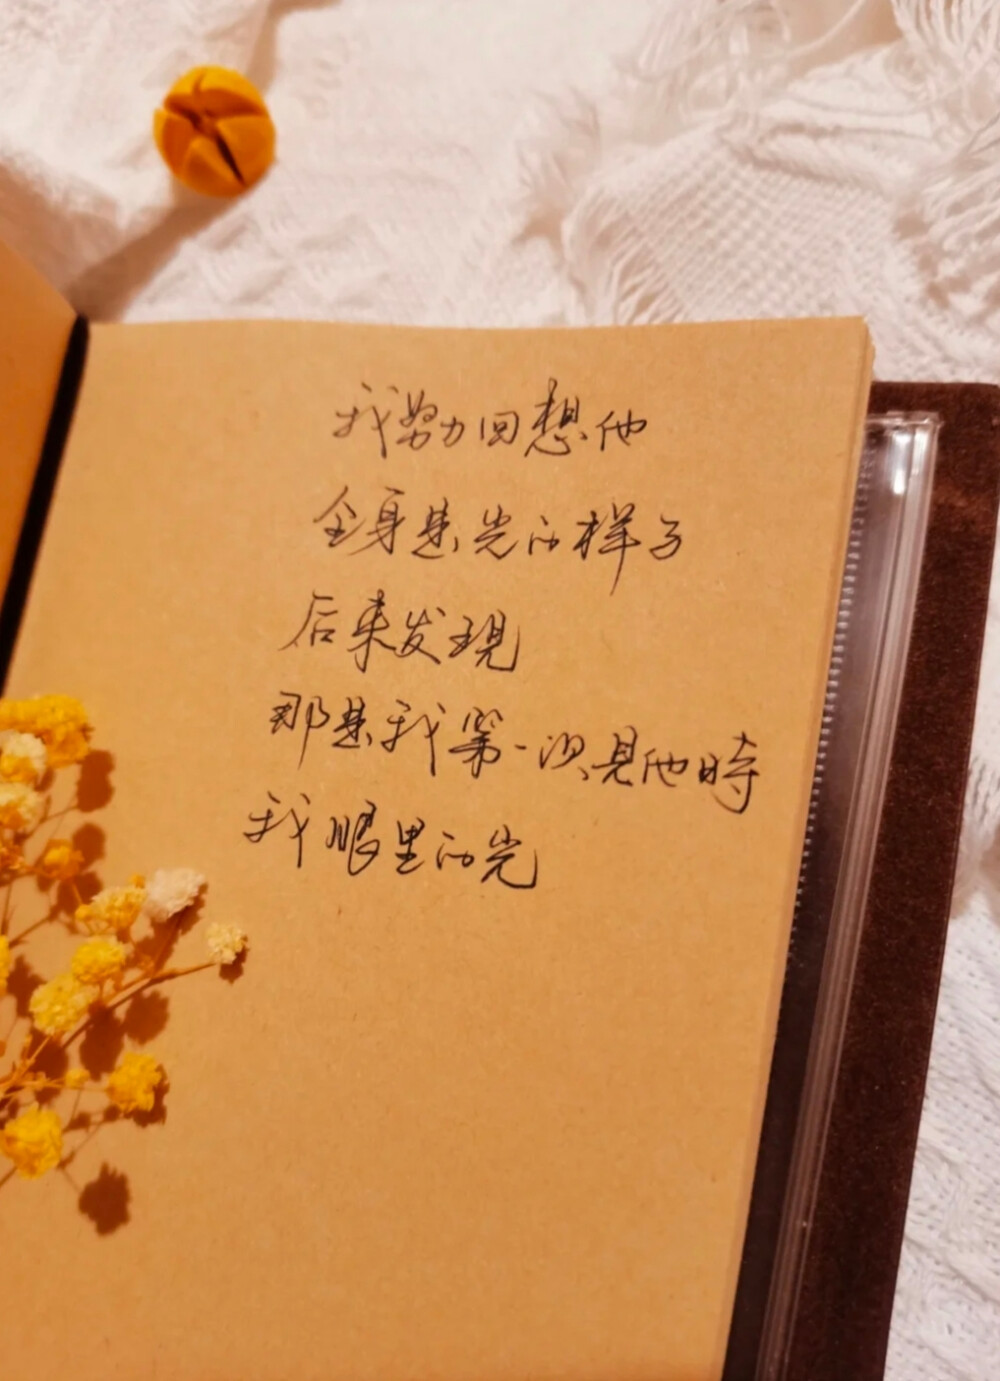 我努力回想他
全身是光的样子
后来发现
那是我第一次见他时
我眼里的光